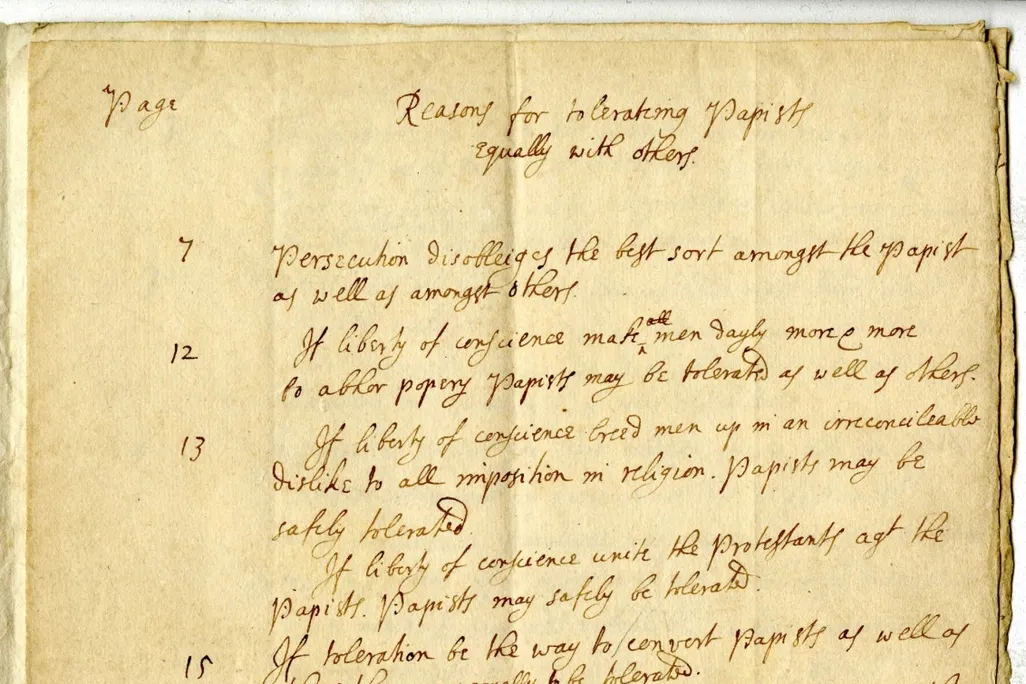 Page
Reasons for tolerating Papists
equally with others.
7 Persecution disobleiges the best sort amongst the Papist
as well as amongst others.
12 If liberty of conscience make all men dayly more & more
to abhor popery Papists may be tolerated as well as others.
13 If liberty of conscience breed men up in an irreconcileable
dislike to all imposition in religion. Papists may be
safely tolerated
If liberty of conscience unite the Protestants agt the
Papists. Papists may safely be tolerated.
15 If toleration be the way to convert Papists as well as
equally to be tolerated.